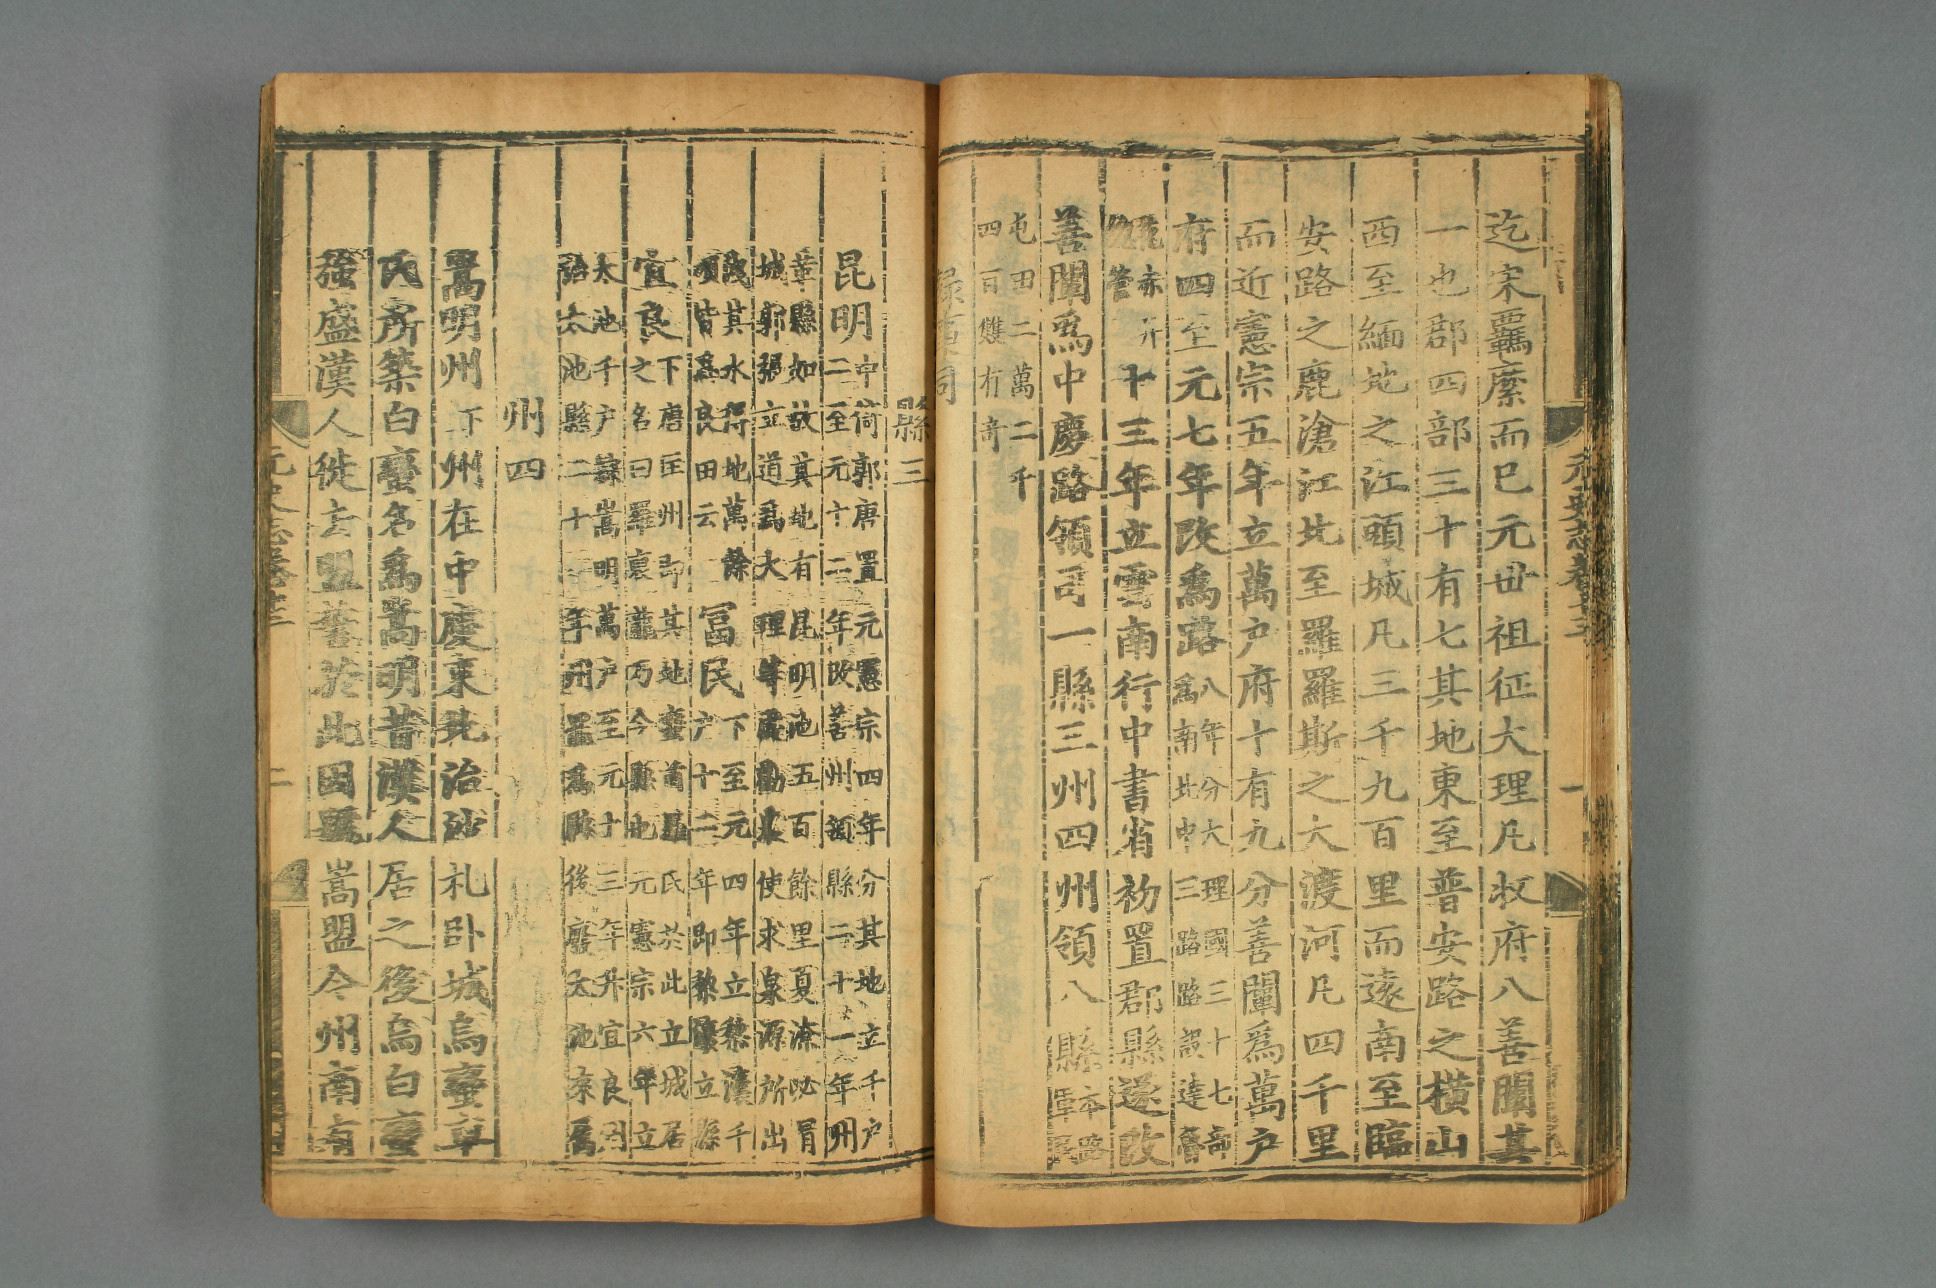 迄宋羈縻而已元世祖征大理凡收府八善闡其
一也郡四部三十有七其地東至普安路之橫山
西至緬地之江頭城凡三千九百里而遠南至臨
安路之鹿滄江北至羅羅斯之大渡河凡四千里
而近憲宗五年立萬户府十有九分善闡爲萬户
府四至元七年改爲路八年分大理國三十七部
爲南北中三路路設達魯
花赤并
總管
十三年立雲南行中書省初置郡縣遂改
善闡爲中慶路領司一縣三州四州領八縣本路
軍民
屯田二萬二千
四百雙有奇
錄事司
縣三
昆明中倚郭唐置元憲宗四年分其地立千户
二至元十二年改善州領縣二十一年州
革縣如故其地有昆明池五百餘里夏潦必冒
城郭張立道爲大理等處勸農使求泉源所出
洩其水得地萬餘
頃皆爲良田云
富民下至元四年立黎灢千
户十二年即黎灢立縣
宜良下唐匡州即其地蠻酋羅氏於此立城居
之名曰羅裒龍乃今縣也元憲宗六年立
太池千户隸嵩明萬户至元十三年升宜良州
治太池縣二十一年州罷爲縣後廢太池來屬
州四
嵩明州下州在中慶東北治沙札卧城烏蠻車
氏所築白蠻名爲嵩明昔漢人居之後烏白蠻
強盛漢人徙去盟誓於此因號嵩盟今州南有